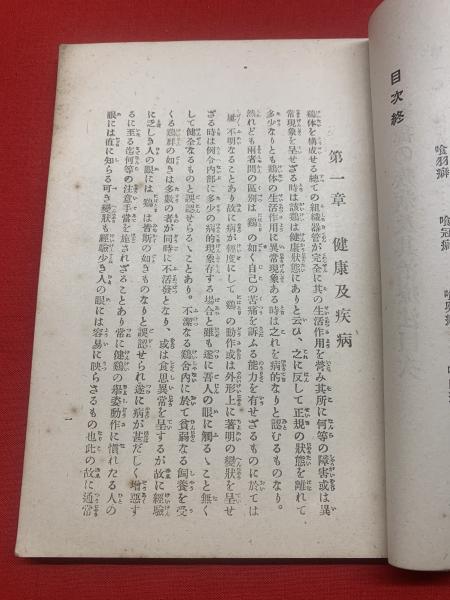 目次終
喰羽癖
喰冠癖
第一章　健康及疾病
鶏体を構成せる総ての組織器官が完全に其の生活作用を營み其所に何等の障害或は異
常現象を呈せざる時は該鶏は健康狀態にありと云ひ、之に反して正規の狀態を離れて
多少なりとも鶏体の生活作用に異常現象ある時は之れを病的なりと認むるものなり。
然れども兩者間の區別は鶏の如く自己の苦痛を訴ふる能力を有せざるものに於ては
屢不明なることあり故に病が輕度にして鶏の動作或は外形上に著明の變狀を呈せ
ざる時は例令内部に多少の病的現象存する場合と雖も遂に吾人の眼に觸るゝこと無く
して健全なるものと誤認せらるゝことあり。不潔なる鶏舍内に於て貧弱なる飼養を受
くる鶏群の如きは多數の者が同時に不活發となり、或は食思異常を呈するが故に經驗
に乏しき人の眼には鶏は皆斯の如きものなりと誤認せられ遂に病が甚だしく增惡す
るに至る迄何等の注意手當を施されざることあり常に健鶏の擧姿動作に慣れたる人の
眼には直に知らる可き變狀も經驗少き人の眼には容易に映らさるもの也此の故に通常
一